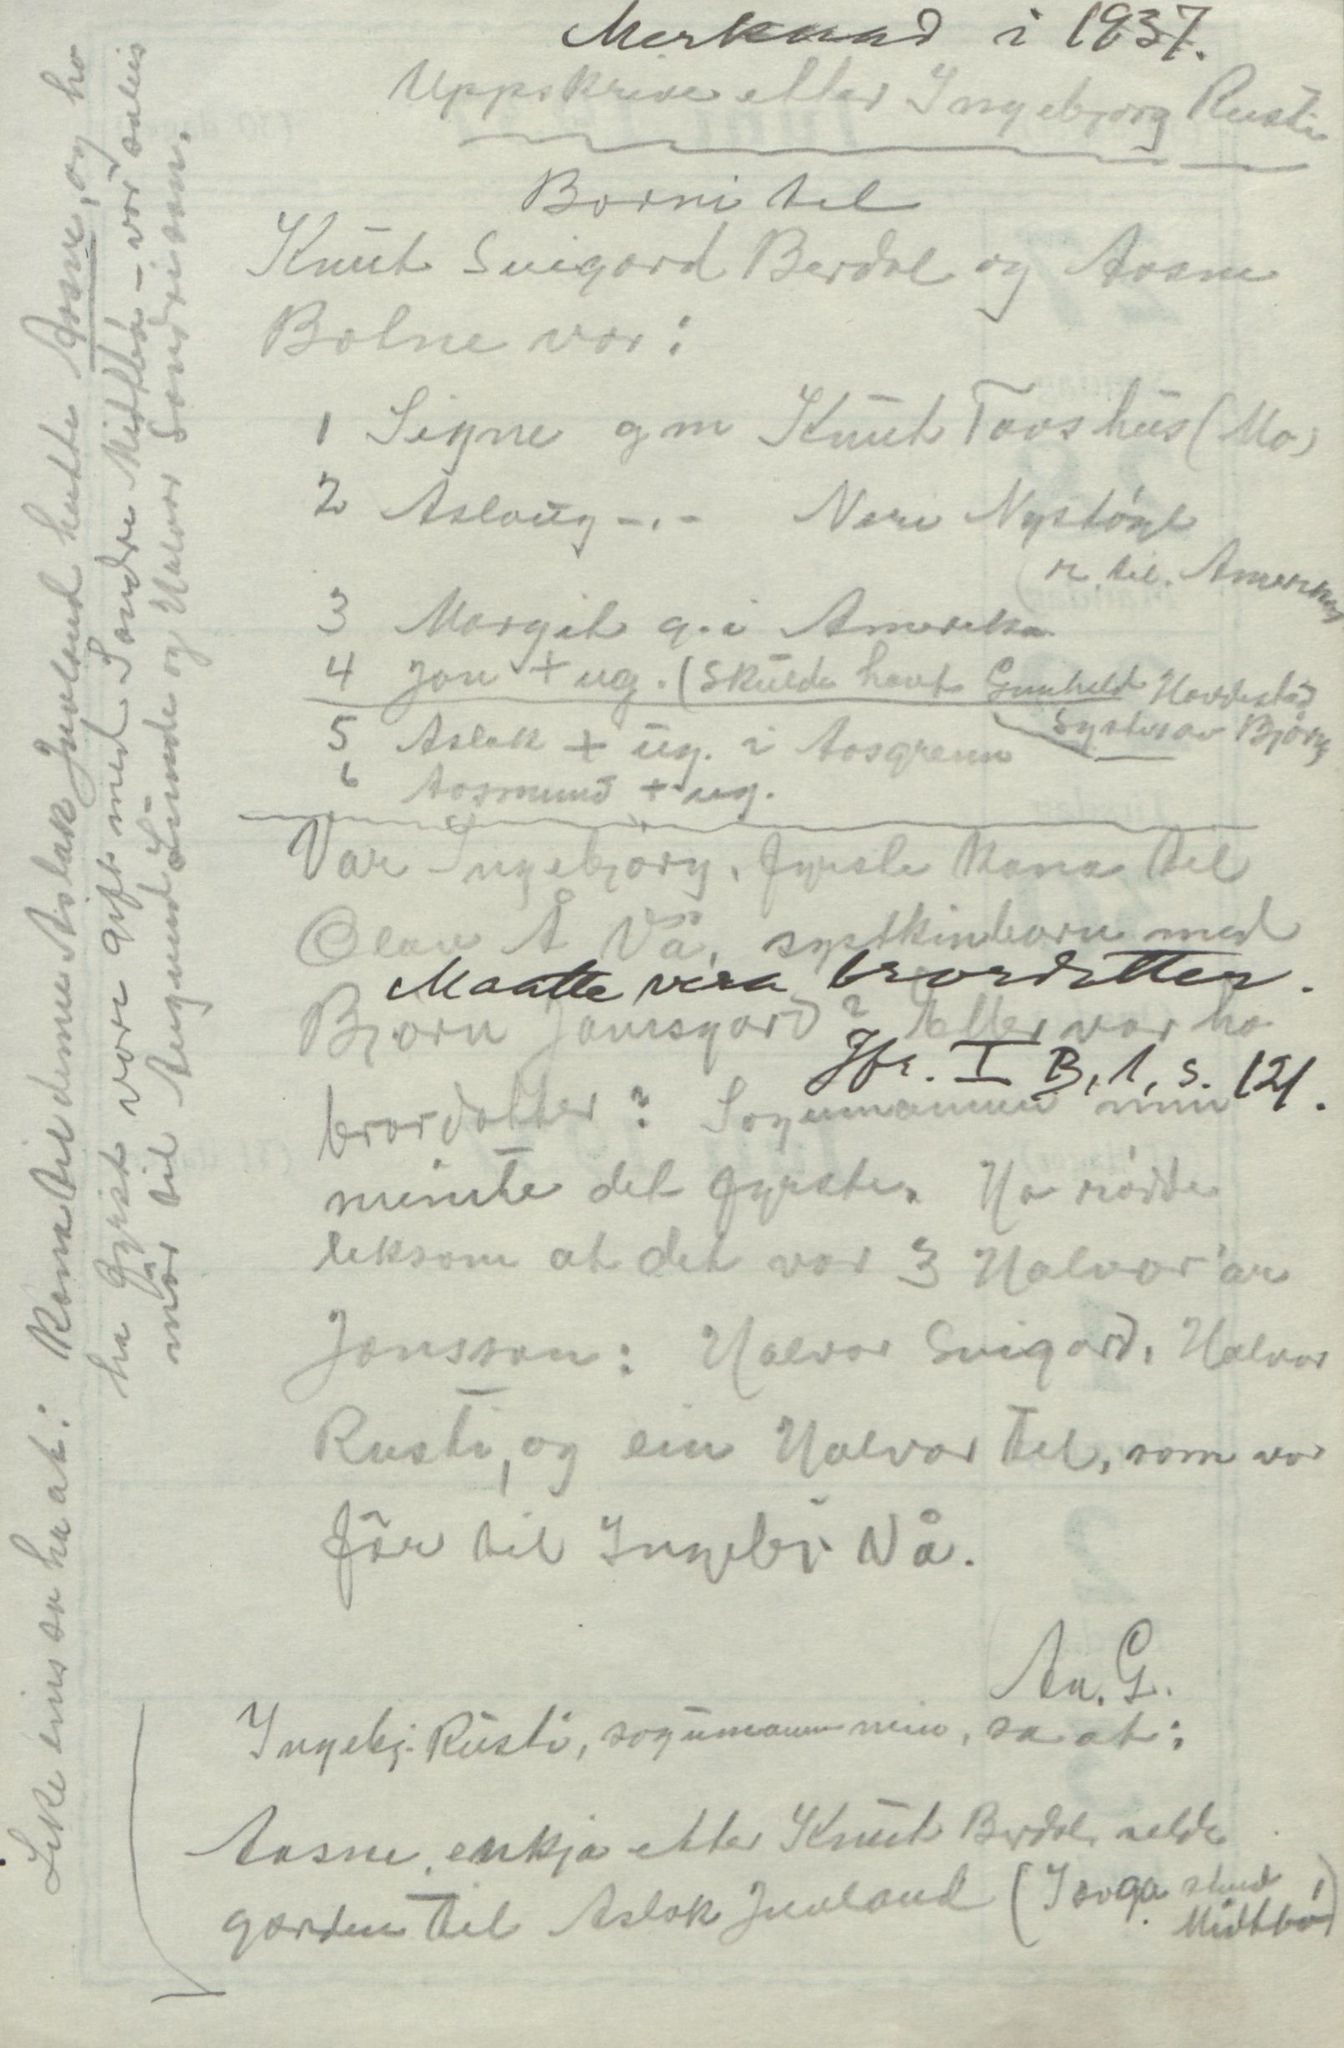 Merknad i 1937.
Uppskrive etter Ingebjorg Rusti
Borni til
Knut Suigard Berdal og Aasne
Bolne var:
1 Signe g m Knut Taoshus (Mo)
2 Aslaug -.- Neri Nystóyl
(r. til. Amerika)
3 Margit g. i Amerika
4 Jon + ug. (Skulde havt Gunhild Hovdestad
Syster av Björg
5 Aslak + ug. i Aasgrenn
6 Aasmund + ug.
Var Ingebjorg, fyrste kona til
Olav Å Vå, systkinborn med
Maatte vera brordotter.
Bjorn Jamsgard? Eller var ho
Jfr. I B, 1, s. 121.
brordotter? Sogumannen min
minte det fyrste. Ho rödde
liksom at det var 3 Halvor'ar
Jonsson: Halvor Suigard, Halvor
Rusti, og ein Halvor til, som var
får til Ingebj. Vå.
An. G.
Ingebj. Rusti, sogumann min, sa at:
Aasne, enkja etter Knut Berdal, selde
garden til Aslak Juvland (I soga stend
Midtbö)
Like eins sa ho at: Kona til denne Aslak Juvland hatte Aasne, og ho
ha fyrst vore gift med Sondre Midtbö - var soleis
mor til Augund Lunde og Halvor Sondreson.